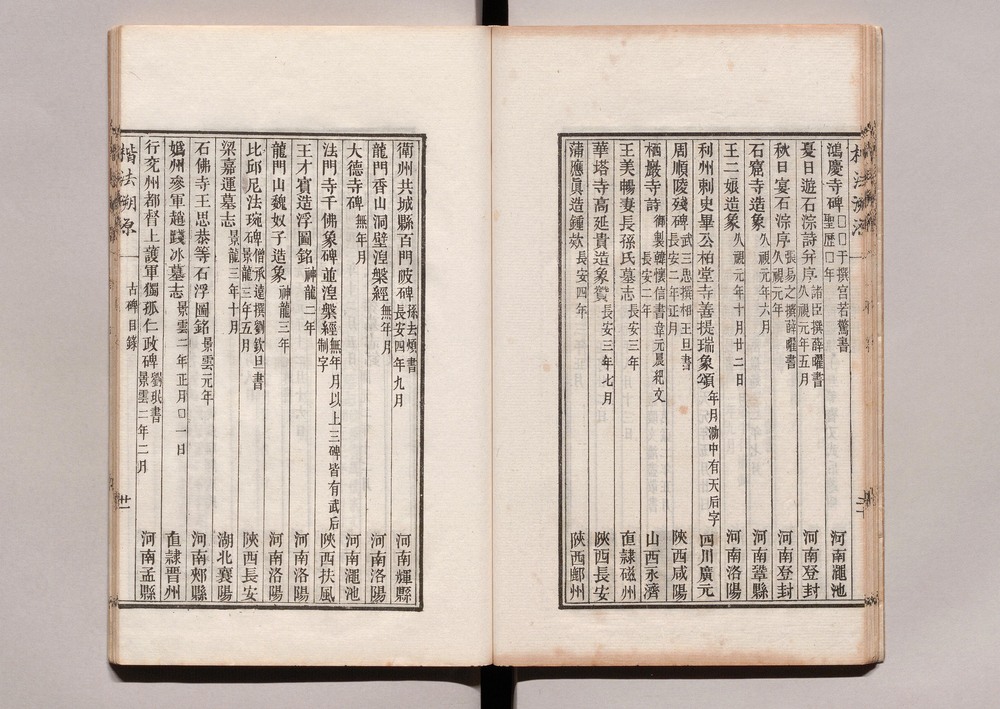 鴻慶寺碑 □□于撰宫若驚書 聖歷□年 河南澠池
夏日遊石淙詩并序 諸臣撰薛曜書 久視元年五月 河南登封
秋日宴石淙序 張易之撰薛曜書 久視元年 河南登封
石窟寺造象 久視元年六月 河南鞏縣
王二娘造象 久視元年十月廿二日 河南洛陽
利州刺史畢公柏堂寺菩提瑞象頌 年月泐中有天后字 四川廣元
周順陵殘碑 武三思撰相王旦書 長安二年正月 陝西咸陽
栖巖寺詩 御製韓懷信書韋元晨紀文 長安二年 山西永濟
王美暢妻長孫氏墓志 長安三年 直隸磁州
華塔寺高延貴造象贊 長安三年七月 陝西長安
蒲應眞造鍾款 長安四年 陝西鄜州
衛州共城縣百門陂碑 孫去煩書 長安四年九月 河南輝縣
龍門香山洞壁湼槃經 無年月 河南洛陽
大德寺碑 無年月 河南澠池
法門寺千佛象碑並湼槃經 無年月以上三碑皆有武后制字 陝西扶風
王才賓造浮圖銘 神龍二年 河南洛陽
龍門山魏奴子造象 神龍三年 河南洛陽
比邱尼法琬碑 僧承遠撰劉欽旦書 景龍三年五月 陝西長安
梁嘉運墓志 景龍三年十月 湖北襄陽
石佛寺王思恭等石浮圖銘 景雲元年 河南郟縣
嬀州參軍趙 冰墓志 景雲二年正月□一日 直隸晋州
行兖州都督上護軍獨孤仁政碑 劉珉書 景雲二年二月 河南孟縣
楷法溯原 一 古碑目錄 廿一